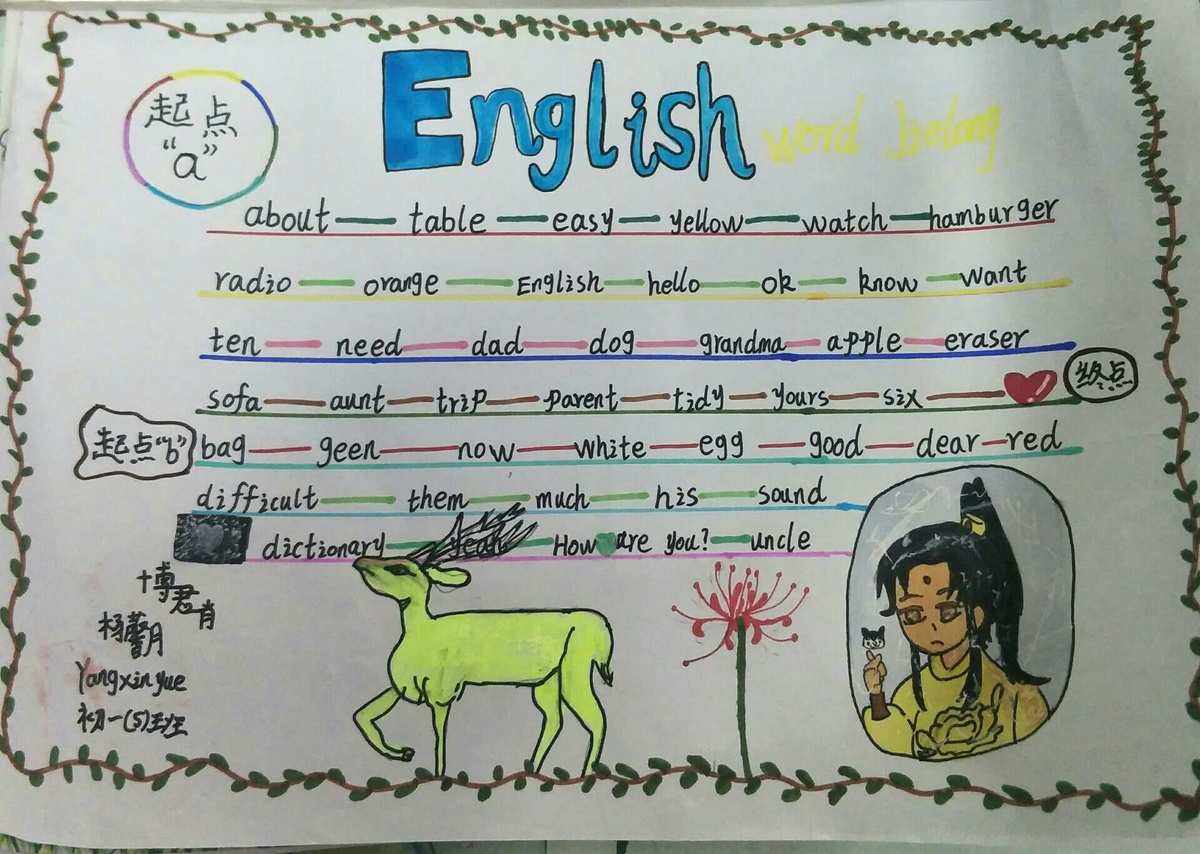 起点
"a"
English
word belong
about table easy yellow watch hamburger
radio orange English hello ok know want
ten need dad dog grandma apple eraser
sofa aunt trip parent tidy yours six
终点
起点"b"
bag geen now white egg good dear red
difficult them much his sound
dictionary yeah How are you? uncle
博君
肖
杨馨月
Yangxinyue
初一(5)班